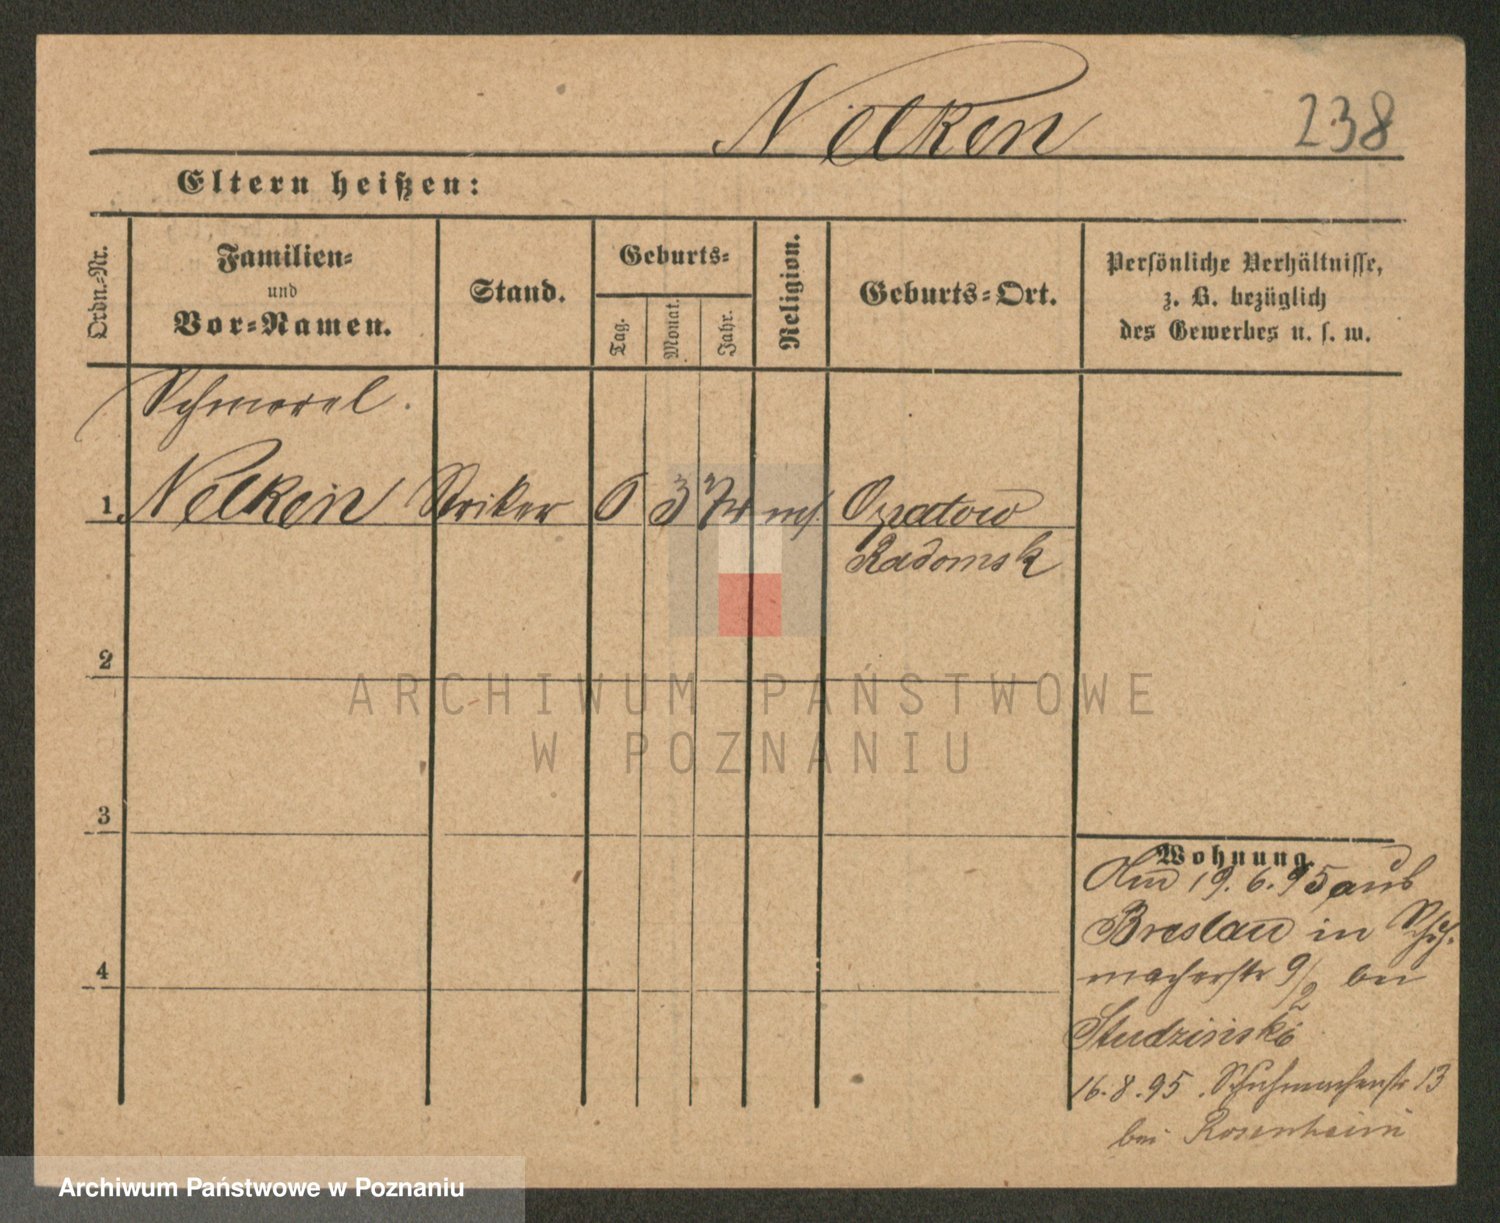 Nelken 238
Eltern heißen:
Ordn.-Nr.
Familien-
und
Vor-Namen.
Stand.
Geburts-
Tag.
Monat.
Jahr.
Religion.
Geburts-Ort.
Persönliche Verhältnisse,
z. B. bezüglich
des Gewerbes u. s. w.
Schmerel
1 Nelken Striker 6 3 74 mos. Opatow
Radomsk
2
ARCHIWUM PAŃSTWOWE
W POZNANIU
3
4
Wohnung
Am 19.6.95 aus
Breslau in Schuh-
macherstr 9/2 bei
Studzinski
16.8.95. Schuhmacherstr 13
bei Rosenheim
Archiwum Państwowe w Poznaniu